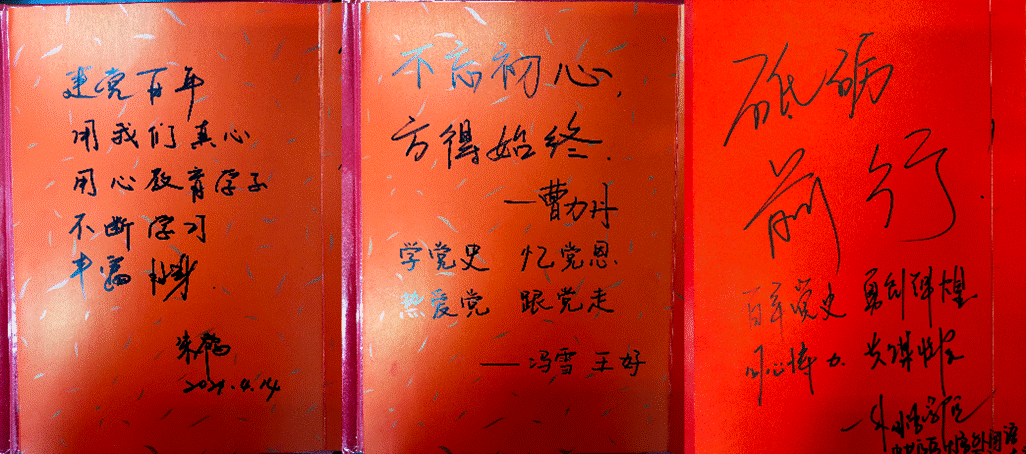 建党百年
用我们真心
用心教育学子
不断学习
丰富自身
2021.4.14
不忘初心,
方得始终.
—曹力丹
学党史 忆党恩
热爱党 跟党走
——冯雪 王好
砥砺
前行.
百年党史 勇创辉煌
同心协力 共谋发展